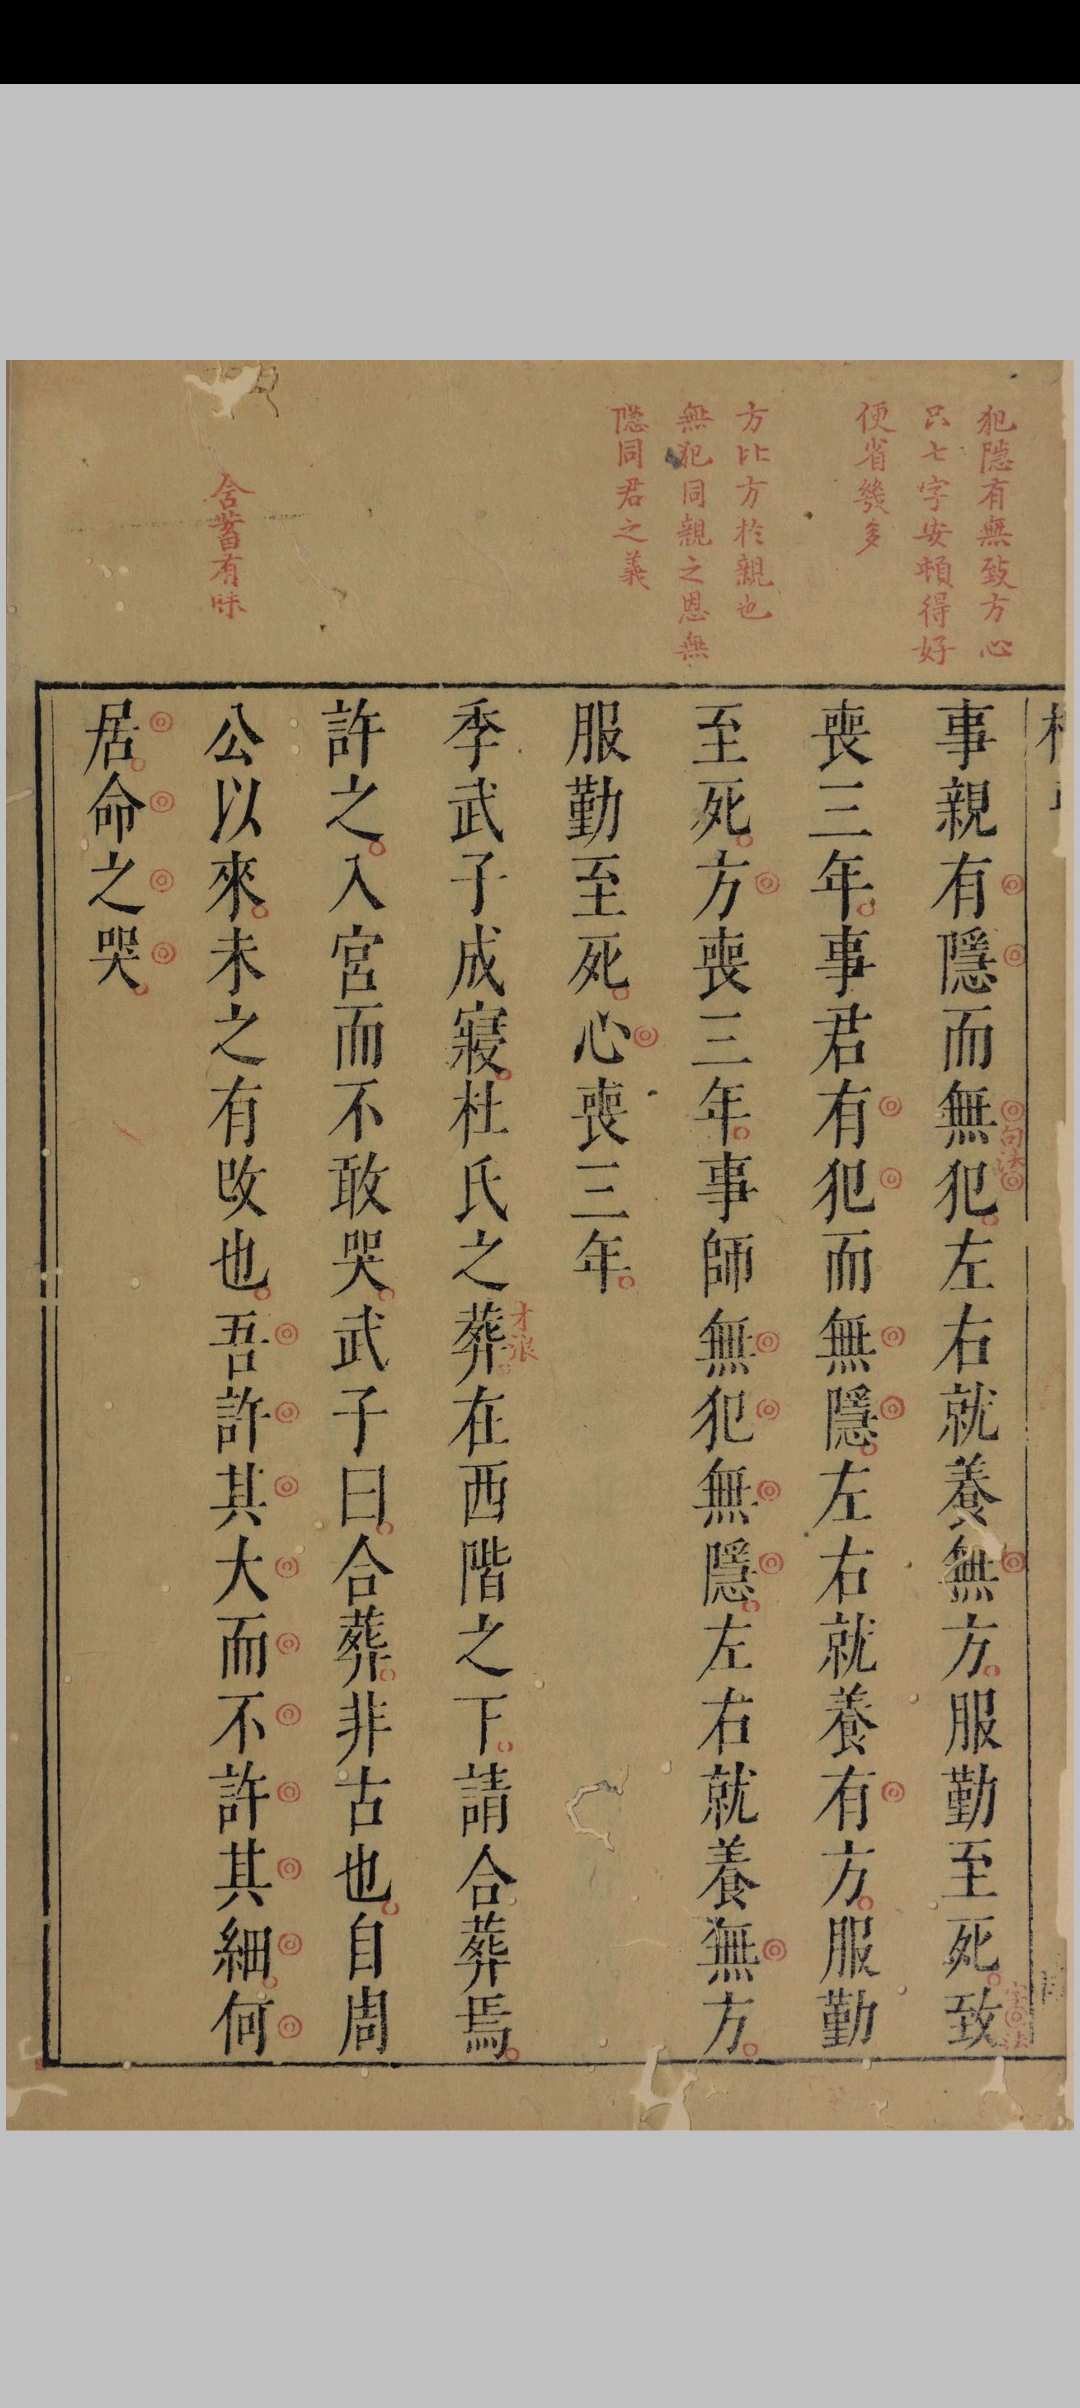 犯隱有無致方心
只七字安頓得好
便省幾多
方比方於親也
無犯同親之恩無
隱同君之義
含蓄有味
事親有隱而無犯左右就養無方服勤至死致
句法
字法
喪三年事君有犯而無隱左右就養有方服勤
至死方喪三年事師無犯無隱左右就養無方
服勤至死心喪三年
季武子成寢杜氏之葬在西階之下請合葬焉
才浪
許之入宮而不敢哭武子曰合葬非古也自周
公以來未之有改也吾許其大而不許其細何
居命之哭